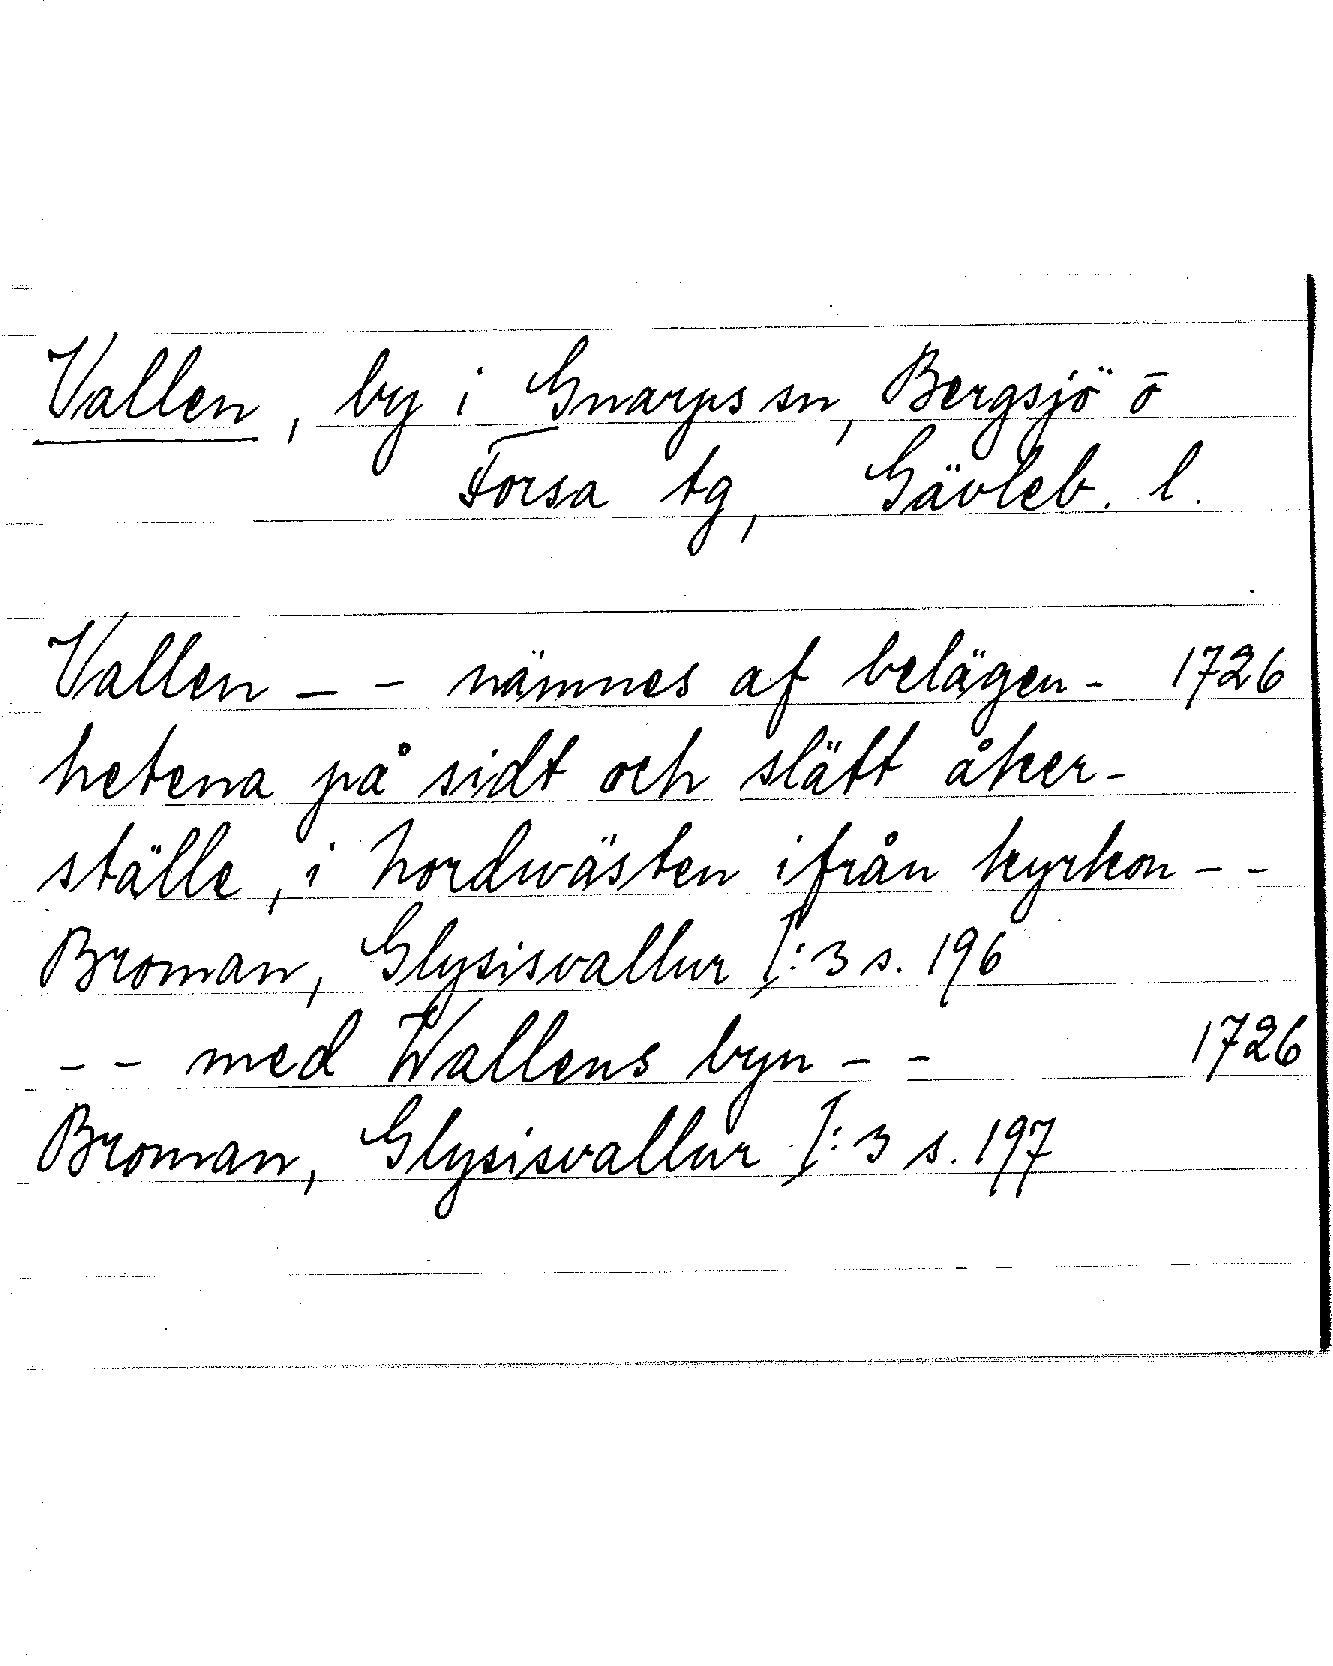 Vallen, by i Gnarps sn, Bergsjö o
Forsa tg, Gävleb. l.
Vallen - - nämnes af belägen- 1726
hetena på sidt och slätt åker-
ställe, i nordwästen ifrån kyrkon - -
Broman, Glysisvallur I:3 s. 196
- - med Wallens byn - - 1726
Broman, Glysisvallur I:3 s. 197